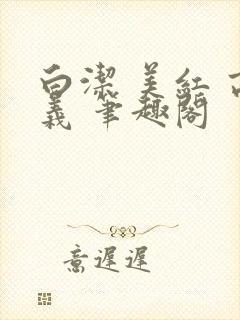 白潔 美紅 
義 筆趣閣
意遲遲